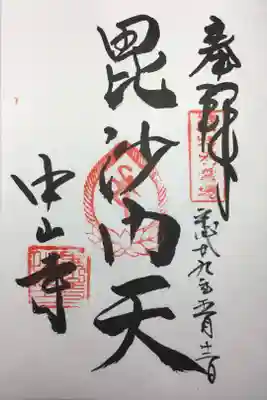 奉拝
平成廿九年 月十二日
毘沙门天
中山寺